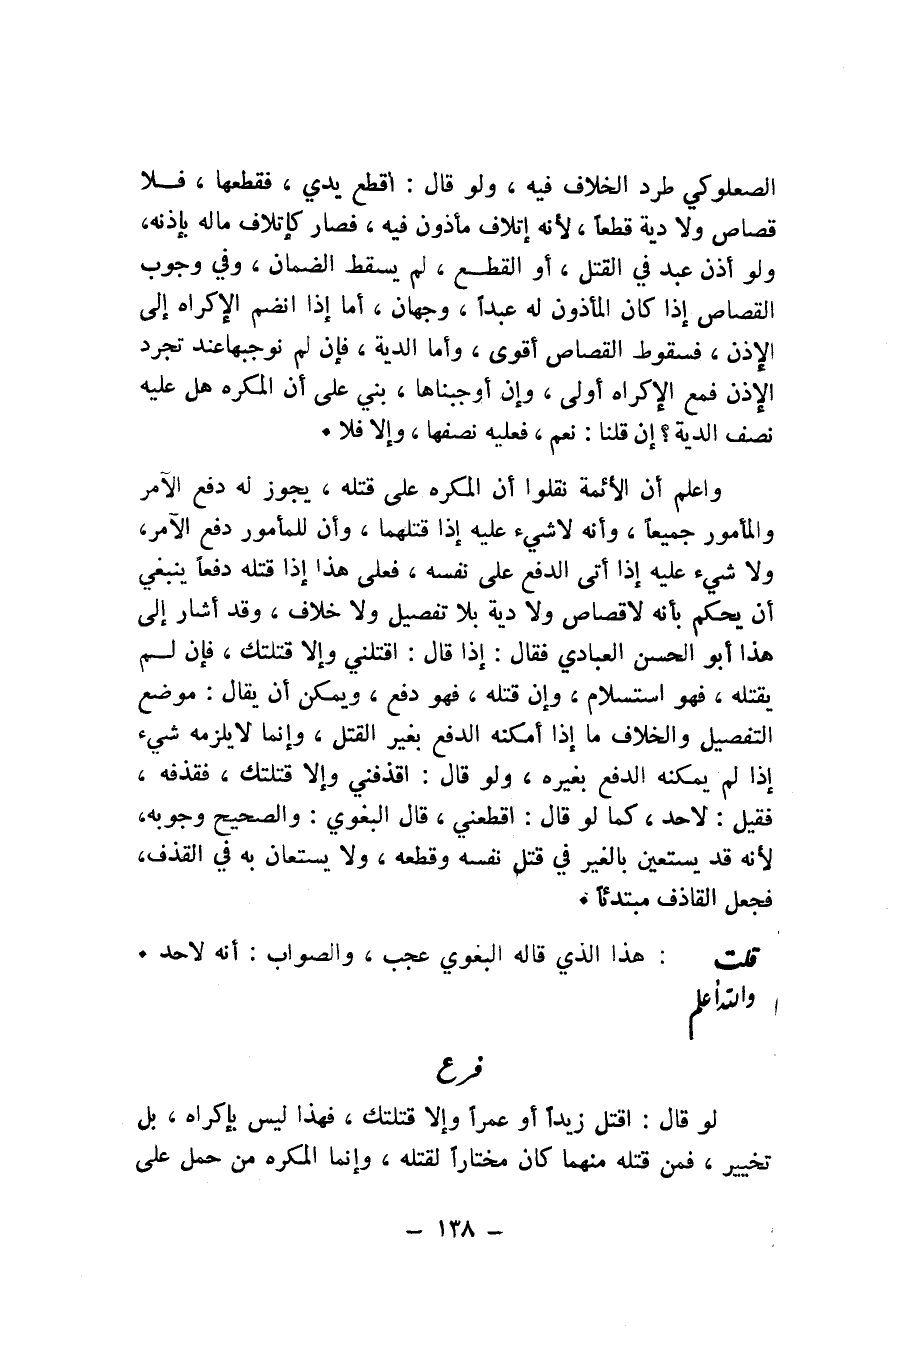 الصعلوكي طرد الخلاف فيه ، ولو قال : اقطع يدي ، فقطعها ، فــلا
قصاص ولا دية قطعاً ، لأنه إتلاف مأذون فيه ، فصار كإتلاف ماله بإذنه،
ولو أذن عبد في القتل ، أو القطــع ، لم يسقط الضمان ، وفي وجوب
القصاص إذا كان المأذون له عبداً ، وجهان ، أما إذا انضم الإكراه إلى
الإذن ، فسقوط القصاص أقوى ، وأما الدية ، فإن لم نوجبهاعند تجرد
الإذن فمع الإكراه أولى ، وإن أوجبناها ، بني على أن المكره هل عليه
نصف الدية ؟ إن قلنا : نعم ، فعليه نصفها ، وإلا فلا .
واعلم أن الأئمة نقلوا أن المكره على قتله ، يجوز له دفع الآمر
والمأمور جميعاً ، وأنه لاشيء عليه إذا قتلهما ، وأن للمأمور دفع الآمر،
ولا شيء عليه إذا أتى الدفع على نفسه ، فعلى هذا إذا قتله دفعاً ينبغي
أن يحكم بأنه لاقصاص ولا دية بلا تفصيل ولا خلاف ، وقد أشار إلى
هذا أبو الحسن العبادي فقال : إذا قال : اقتلني وإلا قتلتك ، فإن لــم
يقتله ، فهو استسلام ، وإن قتله ، فهو دفع ، ويمكن أن يقال : موضع
التفصيل والخلاف ما إذا أمكنه الدفع بغير القتل ، وإنما لايلزمه شيء
إذا لم يمكنه الدفع بغيره ، ولو قال : اقذفني وإلا قتلتك ، فقذفه ،
فقيل : لاحد ، كما لو قال : اقطعني ، قال البغوي : والصحيح وجوبه،
لأنه قد يستعين بالغير في قتل نفسه وقطعه ، ولا يستعان به في القذف،
فجعل القاذف مبتدئاً .
قلت : هذا الذي قاله البغوي عجب ، والصواب : أنه لاحد .
والله أعلم
فرع
لو قال : اقتل زيداً أو عمراً وإلا قتلتك ، فهذا ليس بإكراه ، بل
تخيير ، فمن قتله منهما كان مختاراً لقتله ، وإنما المكره من حمل على
– ١٣٨ –